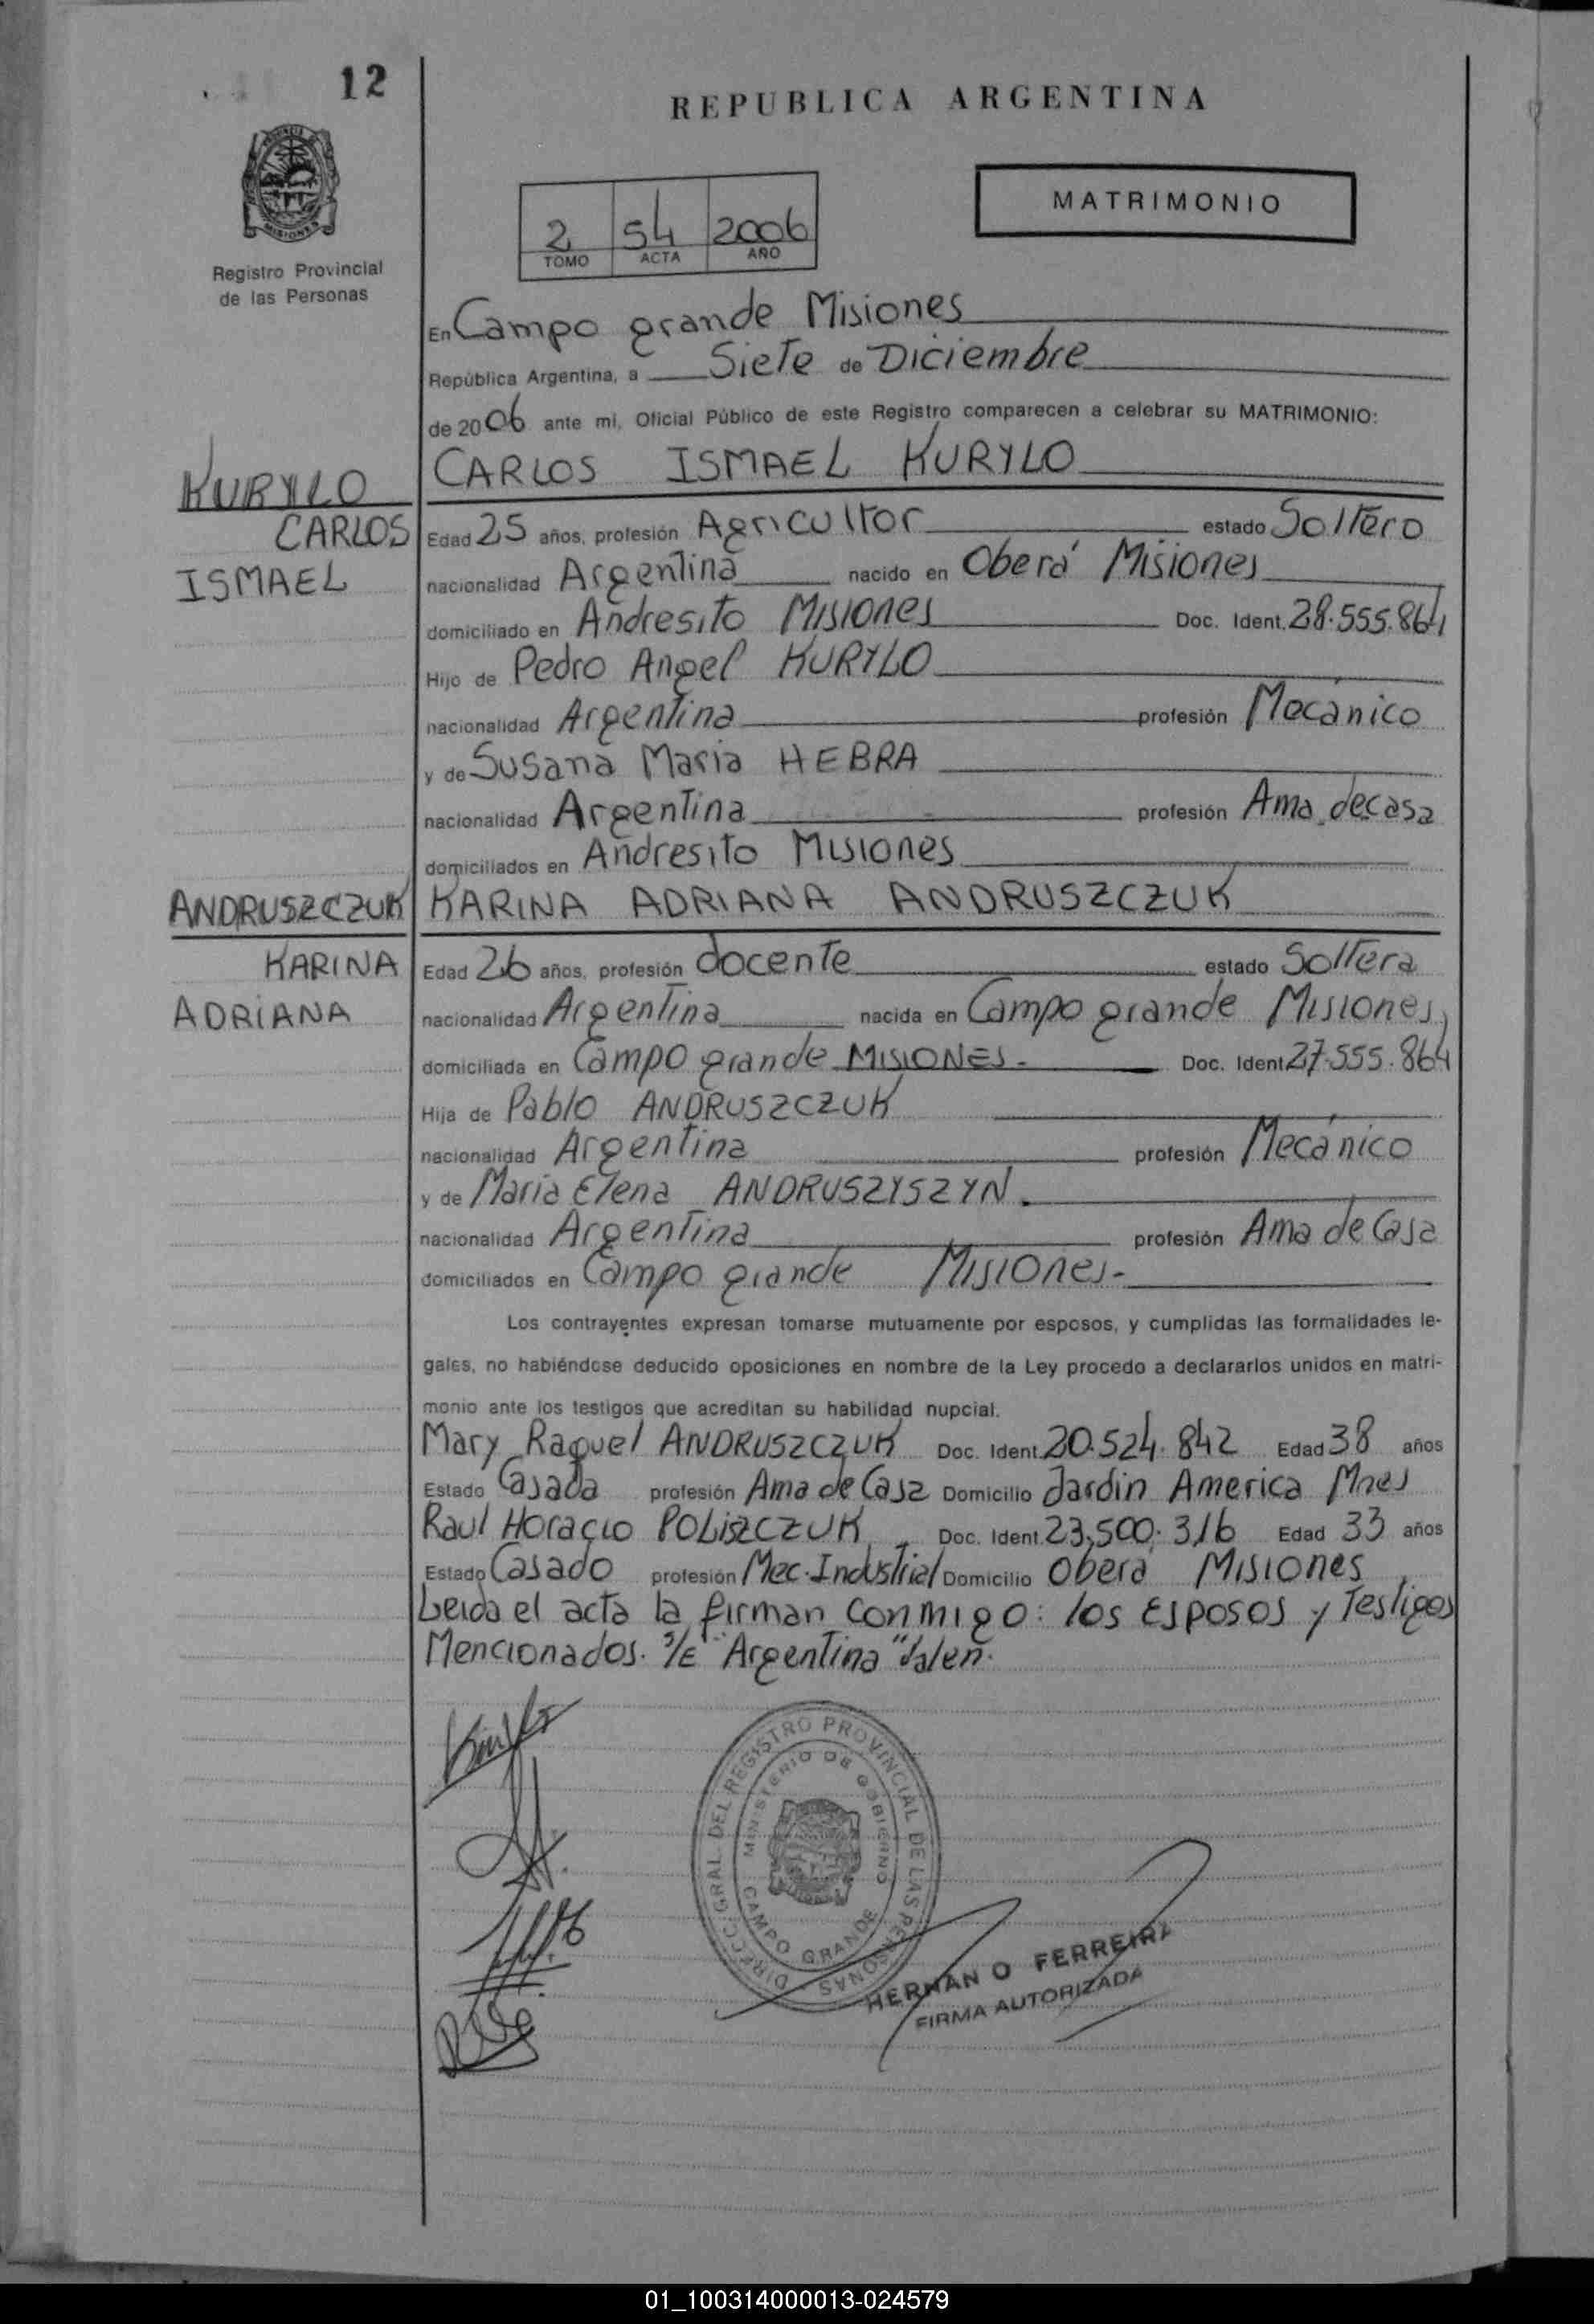 12
REPUBLICA ARGENTINA
MATRIMONIO
2 54 2006
TOMO ACTA AÑO
Registro Provincial
de las Personas
En Campo grande Misiones
República Argentina, a Siete de Diciembre
de 2006 ante mi, Oficial Público de este Registro comparecen a celebrar su MATRIMONIO:
KURYLO CARLOS ISMAEL KURYLO
CARLOS Edad 25 años, profesión Agricultor estado Soltero
ISMAEL nacionalidad Argentina nacido en Oberá Misiones
domiciliado en Andresito Misiones Doc. Ident. 28.555.864
Hijo de Pedro Angel KURYLO
nacionalidad Argentina profesión Mecánico
y de Susana Maria HEBRA
nacionalidad Argentina profesión Ama de casa
domiciliados en Andresito Misiones
ANDRUSZCZUK KARINA ADRIANA ANDRUSZCZUK
KARINA Edad 26 años, profesión docente estado Soltera
ADRIANA nacionalidad Argentina nacida en Campo grande Misiones
domiciliada en Campo grande MISIONES.- Doc. Ident 27.555.864
Hija de Pablo ANDRUSZCZUK
nacionalidad Argentina profesión Mecánico
y de Maria Elena ANDRUSZYSZYN.
nacionalidad Argentina profesión Ama de Casa
domiciliados en Campo grande Misiones-
Los contrayentes expresan tomarse mutuamente por esposos, y cumplidas las formalidades le-
gales, no habiéndose deducido oposiciones en nombre de la Ley procedo a declararlos unidos en matri-
monio ante los testigos que acreditan su habilidad nupcial.
Mary Raquel ANDRUSZCZUK Doc. Ident. 20.524.842 Edad 38 años
Estado Casada profesión Ama de Casa Domicilio Jardin America Mnes
Raul Horacio POLISZCZUK Doc. Ident. 23.500.316 Edad 33 años
Estado Casado profesión Mec. Industrial Domicilio Oberá Misiones
Leida el acta la firman conmigo: los Esposos y Testigos
Mencionados. S/E "Argentina" Valen.
DIRECC. GRAL. DEL REGISTRO PROVINCIAL DE LAS PERSONAS
MINISTERIO DE GOBIERNO
CAMPO GRANDE
HERNAN O FERREIRA
FIRMA AUTORIZADA
01_100314000013-024579